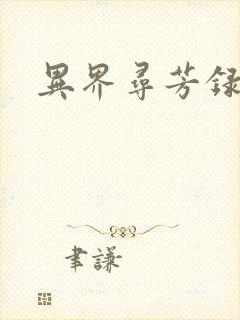 異界尋芳録
聿謙